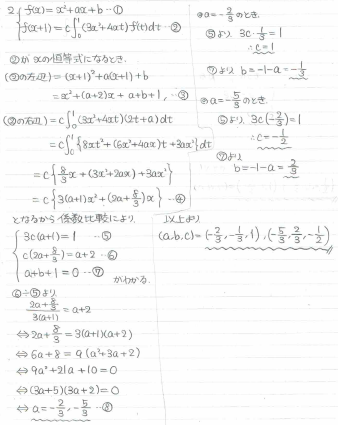 2 { f(x) = x²+ax+b …①
f(x+1) = c∫₀¹(3x²+4xt)f'(t)dt …②
②がxの恒等式になるとき.
(②の左辺) = (x+1)²+a(x+1)+b
= x²+(a+2)x + a+b+1, …③
(②の右辺) = c∫₀¹(3x²+4xt)(2t+a)dt
= c∫₀¹{8xt²+(6x²+4ax)t+3ax²}dt
= c{8/3x+(3x²+2ax)+3ax²}
= c{3(a+1)x²+(2a+8/3)x} …④
となるから係数比較により,
{ 3c(a+1)=1 …⑤
c(2a+8/3)=a+2 …⑥
a+b+1=0 …⑦
がわかる.
⑥÷⑤より
(2a+8/3)/3(a+1) = a+2
⇔ 2a+8/3 = 3(a+1)(a+2)
⇔ 6a+8 = 9(a²+3a+2)
⇔ 9a²+21a+10=0
⇔ (3a+5)(3a+2)=0
⇔ a=-2/3, -5/3 …⑧
a=-2/3のとき.
⑤より 3c・1/3=1
∴c=1
⑦より b=-1-a=-1/3
a=-5/3のとき.
⑤より 3c(-2/3)=1
∴c=-1/2
⑦より
b=-1-a=2/3
以上より
(a,b,c)=(-2/3,-1/3,1),(-5/3,2/3,-1/2)